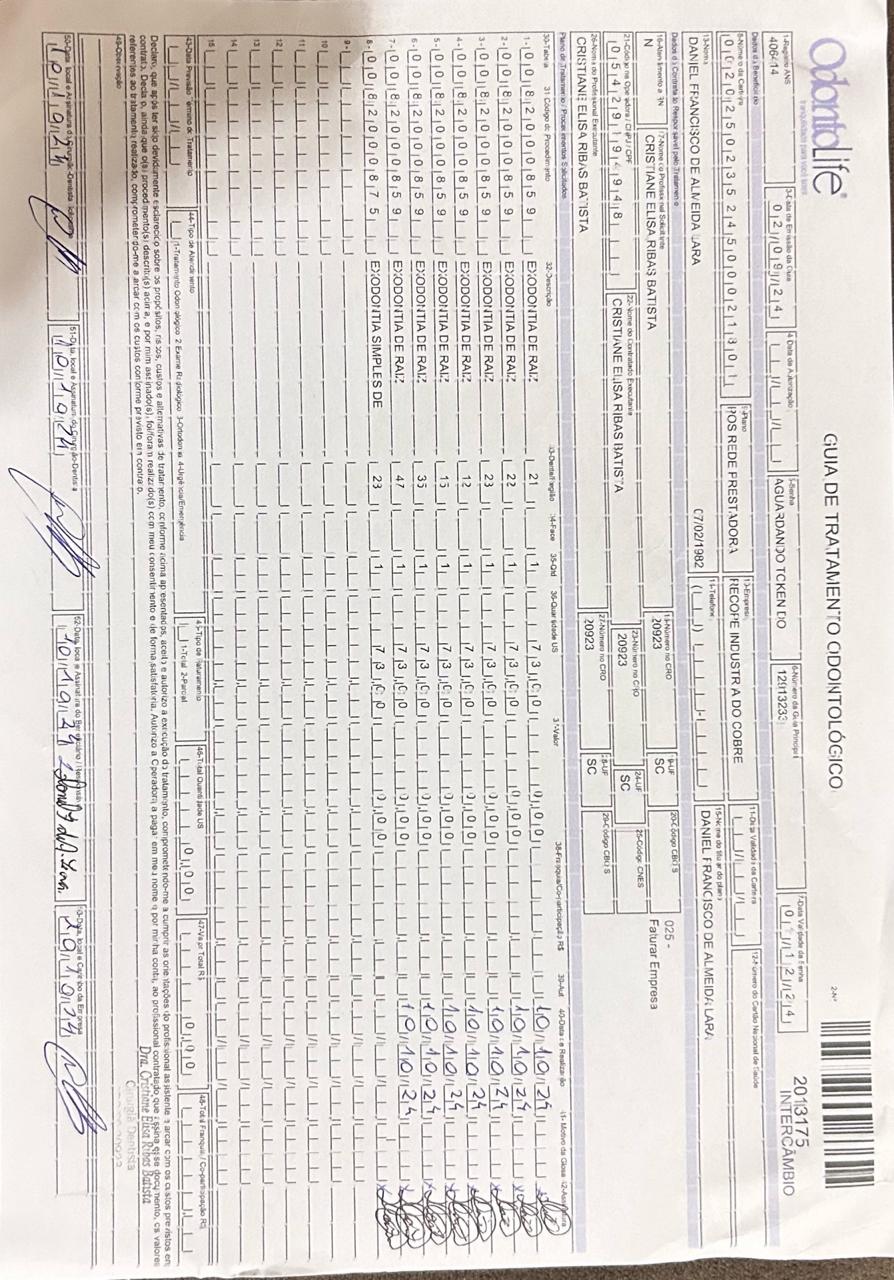 OdontoLife®
tranquilidade para você sorrir
GUIA DE TRATAMENTO ODONTOLÓGICO
2-Nº
2013175
INTERCÂMBIO
1-Registro ANS
406414
3-Data de Emissão da Guia
02/09/24
4-Data de Autorização
5-Senha
AGUARDANDO TOKEN DO
6-Número da Guia Principal
12913233
7-Data Validade da Senha
Dados do Beneficiário
8-Número da Carteira
9-Plano
POS REDE PRESTADORA
10-Empresa
RECOFE INDUSTRIA DO COBRE
11-Data Validade da Carteira
12-Número do Cartão Nacional de Saúde
13-Nome
DANIEL FRANCISCO DE ALMEIDA LARA
07/02/1982
14-Telefone
15-Nome do titular do plano
DANIEL FRANCISCO DE ALMEIDA LARA
Dados do Contratado Responsável pelo Tratamento
16-Atendimento a RN
N
17-Nome do Profissional Solicitante
CRISTIANE ELISA RIBAS BATISTA
18-Número no CRO
20923
19-UF
SC
20-Código CBO S
025 -
Faturar Empresa
21-Código na Operadora / CNPJ / CPF
22-Nome do Contratado Executante
CRISTIANE ELISA RIBAS BATISTA
23-Número no CRO
20923
24-UF
SC
25-Código CNES
26-Nome do Profissional Executante
CRISTIANE ELISA RIBAS BATISTA
27-Número no CRO
20923
28-UF
SC
29-Código CBO S
Plano de Tratamento / Procedimentos Solicitados
30-Tabela 31-Código do Procedimento 32-Descrição 33-Dente/Região 34-Face 35-Qtd 36-Quantidade US 37-Valor 38-Franquia/Co-participação R$ 39-Aut 40-Data de Realização 41-Motivo da Glosa 42-Assinatura
1- 00 82000859 EXODONTIA DE RAIZ 21 1 73,00 0,00 10/10/24
2- 00 82000859 EXODONTIA DE RAIZ 22 1 73,00 0,00 10/10/24
3- 00 82000859 EXODONTIA DE RAIZ 23 1 73,00 0,00 10/10/24
4- 00 82000859 EXODONTIA DE RAIZ 12 1 73,00 0,00 10/10/24
5- 00 82000859 EXODONTIA DE RAIZ 15 1 73,00 0,00 10/10/24
6- 00 82000859 EXODONTIA DE RAIZ 35 1 73,00 0,00 10/10/24
7- 00 82000859 EXODONTIA DE RAIZ 47 1 73,00 0,00 10/10/24
8- 00 82000875 EXODONTIA SIMPLES DE 23 1 73,00 0,00
9-
10-
11-
12-
13-
14-
15-
43-Data Previsão Término do Tratamento
44-Tipo de Atendimento
1-Tratamento Odontológico 2-Exame Radiológico 3-Ortodontia 4-Urgência/Emergência
45-Tipo de Faturamento
1-Total 2-Parcial
46-Total Quantidade US
0,00
47-Valor Total R$
0,00
48-Total Franquia / Co-participação R$
Declaro, que após ter sido devidamente esclarecido sobre os propósitos, riscos, custos e alternativas de tratamento, conforme acima apresentados, aceito e autorizo a execução do tratamento, comprometendo-me a cumprir as orientações do profissional assistente e arcar com os custos previstos em
contrato. Declaro, ainda que o(s) procedimento(s) descrito(s) acima, e por mim assinado(s), foi/foram realizado(s) com meu consentimento e de forma satisfatória. Autorizo a Operadora a pagar em meu nome e por minha conta, ao profissional contratado que assina esse documento, os valores
referentes ao tratamento realizado, comprometendo-me a arcar com os custos conforme previsto em contrato.
49-Observação
Dra. Cristiane Elisa Ribas Batista
Cirurgiã Dentista
50-Data, local e Assinatura do Cirurgião-Dentista Solicitante
10/19/24
51-Data, local e Assinatura do Cirurgião-Dentista
10/19/24
52-Data, local e Assinatura do Beneficiário / Responsável
10/19/24
53-Data, local e Carimbo da Empresa